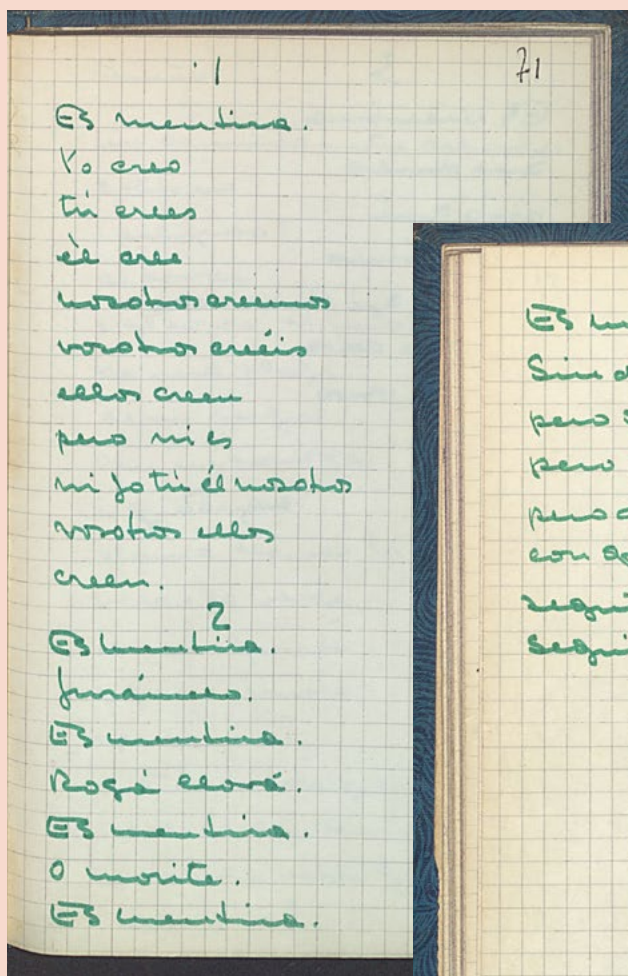 1
71
Es mentira.
Yo creo
tú crees
él cree
nosotros creemos
vosotros creéis
ellos creen
pero ni es
ni yo tú él nosotros
vosotros ellos
creen.
2
Es mentira.
Jurámelo.
Es mentira.
Rogá llorá.
Es mentira.
O morite.
Es mentira.
Es
Sin
pero
pero
pero
con